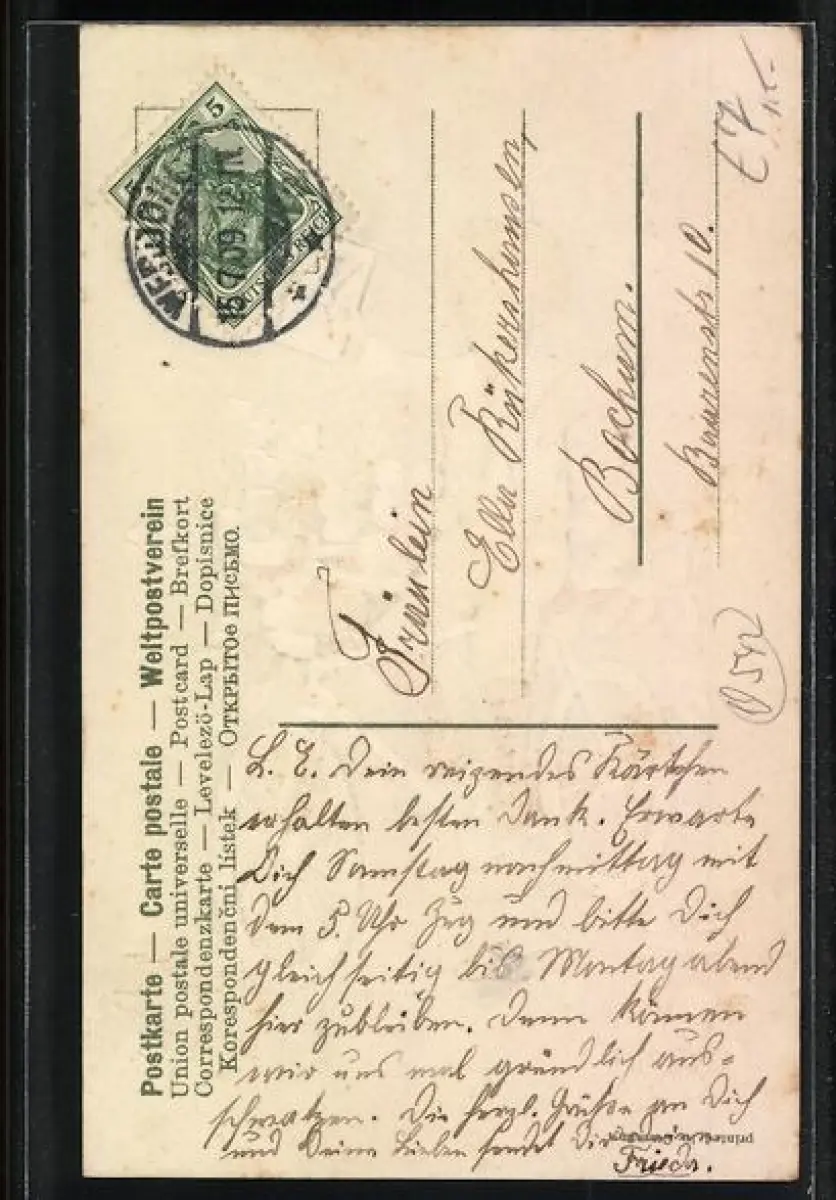 Postkarte — Carte postale — Weltpostverein
Union postale universelle — Postcard — Brefkort
Correspondenzkarte — Levelező-Lap — Dopisnice
Korespondenční lístek — Открытое письмо.
5
5
15.7.09. 12-1N
DEUTSCHES REICH
Fräulein
Ella
Bochum.
10.
542
L. E. Dein reizendes Kärtchen
erhalten besten Dank. Erwarte
Dich Samstag nachmittag mit
dem 5. Uhr Zug und bitte Dich
gleichzeitig bis Montag abend
hier zubleiben. Dann können
wir uns mal gründlich aus-
schwatzen. Die herzl. Grüße an Dich
und Deine Lieben sendet Dir
Friedr.
printed in Germany